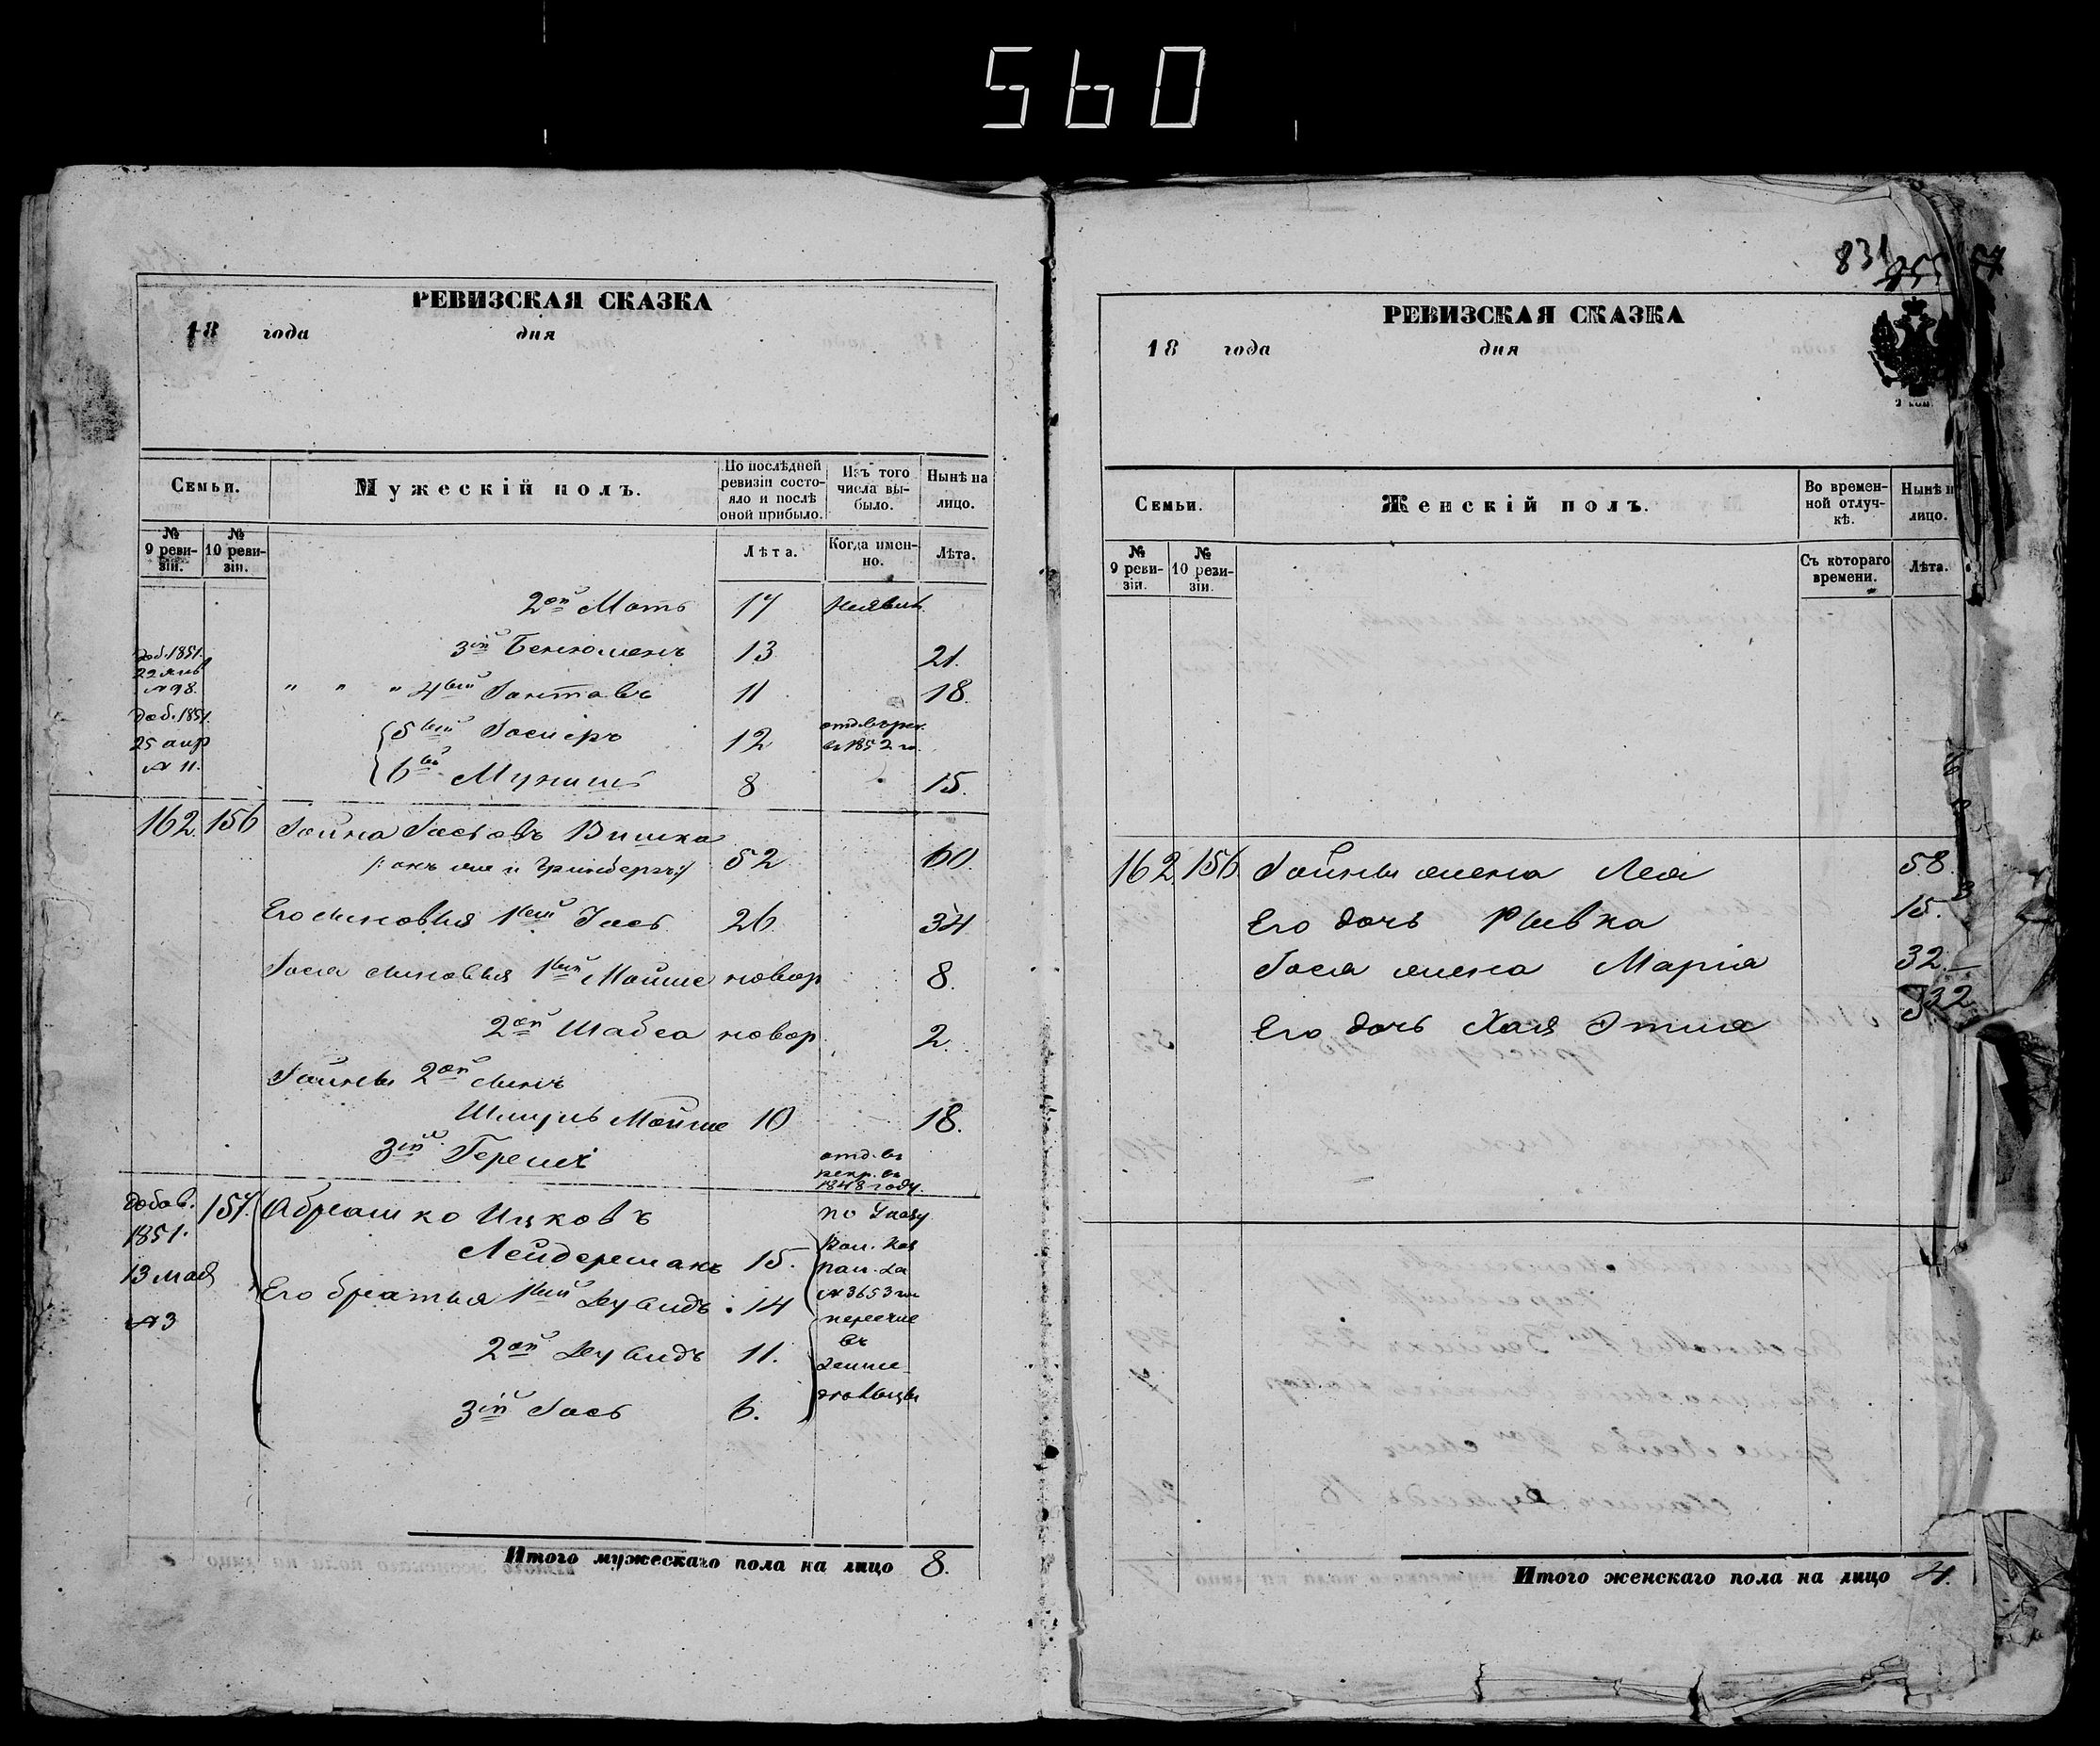 560
РЕВИЗСКАЯ СКАЗКА
18 года дня
Семьи.
Мужескій полъ.
По послѣдней ревизіи состояло и послѣ оной прибыло.
Изъ того числа выбыло.
Нынѣ на лицо.
№ 9 ревизіи.
№ 10 ревизіи.
Лѣта.
Когда именно.
Лѣта.
2ой Мать 17
3ій Беніоменъ 13 21.
доб. 1851.
22 янв
№ 98.
" " " 4ый 11 18.
доб. 1851.
25 апр
№ 11.
5ый 12
въ 1852 го.
6ой 8 15.
162. 156 Вишка
52 60.
Его сыновья 1ый Іось 26 34
Іося сыновья 1ый Мойше новор 8.
2ой Шабса новор. 2.
2ой сынъ
Шмуль Мойше 10 18.
3ій Гершъ
отд. въ
рекр. въ
1848 году.
добав.
1851.
13 мая
№ 3
157. Абрамко Ицковъ
Лейдерманъ 15.
Его братья 1ый Дувидъ 14
2ой Дувидъ 11.
3ій Іось 6.
по Указу
Каз. Пал. за
№ 3653
въ
Итого мужескаго пола на лицо 8.
831
РЕВИЗСКАЯ СКАЗКА
18 года дня
Семьи.
Женскій полъ.
Во временной отлучкѣ.
Нынѣ на лицо.
№ 9 ревизіи.
№ 10 ревизіи.
Съ котораго времени.
Лѣта.
162. 156 жена Лея 58.
Его дочь Рывка 15.
Іося жена Марія 32.
Его дочь Хая Этля
Итого женскаго пола на лицо 4.